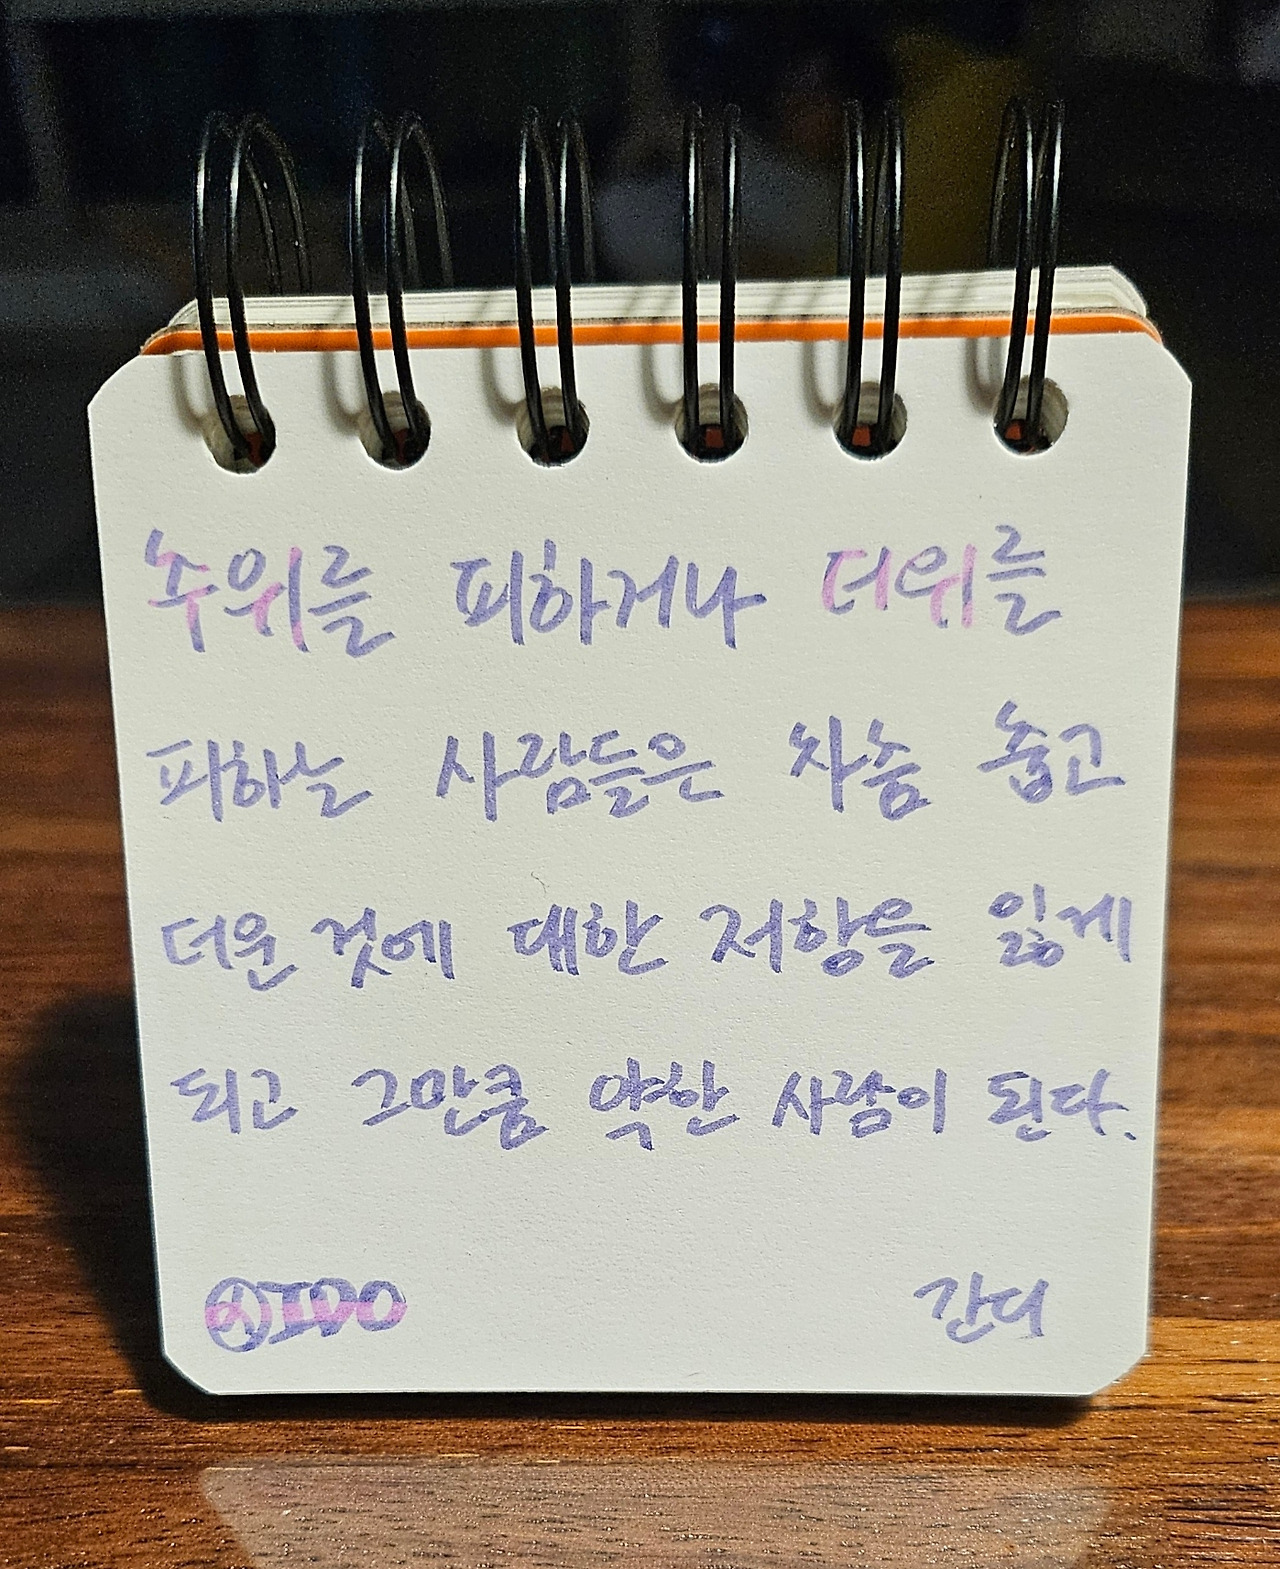 추위를 피하거나 더위를
피하는 사람들은 차츰 춥고
더운 것에 대한 저항을 잃게
되고 그만큼 약한 사람이 된다.
간디